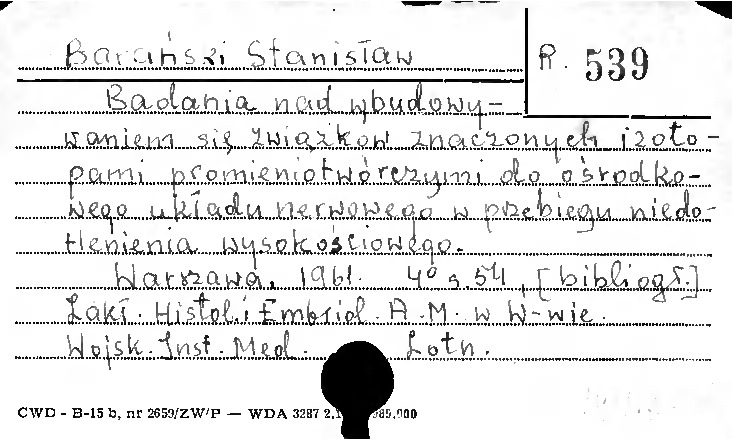 Barański Stanisław
R. 539
Badania nad wbudowy-
waniem się związków znaczonych izoto-
pami promieniotwórczymi do ośrodko-
wego układu nerwowego w przebiegu niedo-
tlenienia wysokościowego.
Warszawa, 1961. 4° s. 54, [bibliogr.]
Zakł. Histol. i Embriol. A.M. w W-wie.
Wojsk. Inst. Med. Lotn.
CWD - B-15 b, nr 2659/ZW/P — WDA 3287 985.000